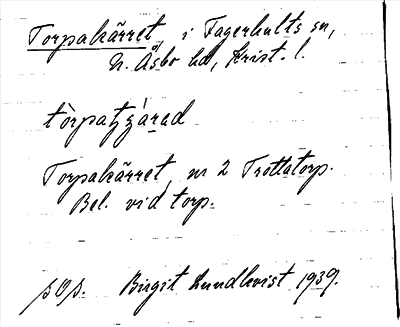 Torpakärret, i Fagerhults sn,
N. Åsbo hd, Krist. l.
Torpakärret, nr 2 Trottatorp.
Bel. vid torp.
Birgit Lundkvist 1939.